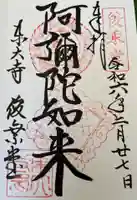 奉拝
令和六年 月廿七日
阿彌陀如来
東大寺 俊乗堂